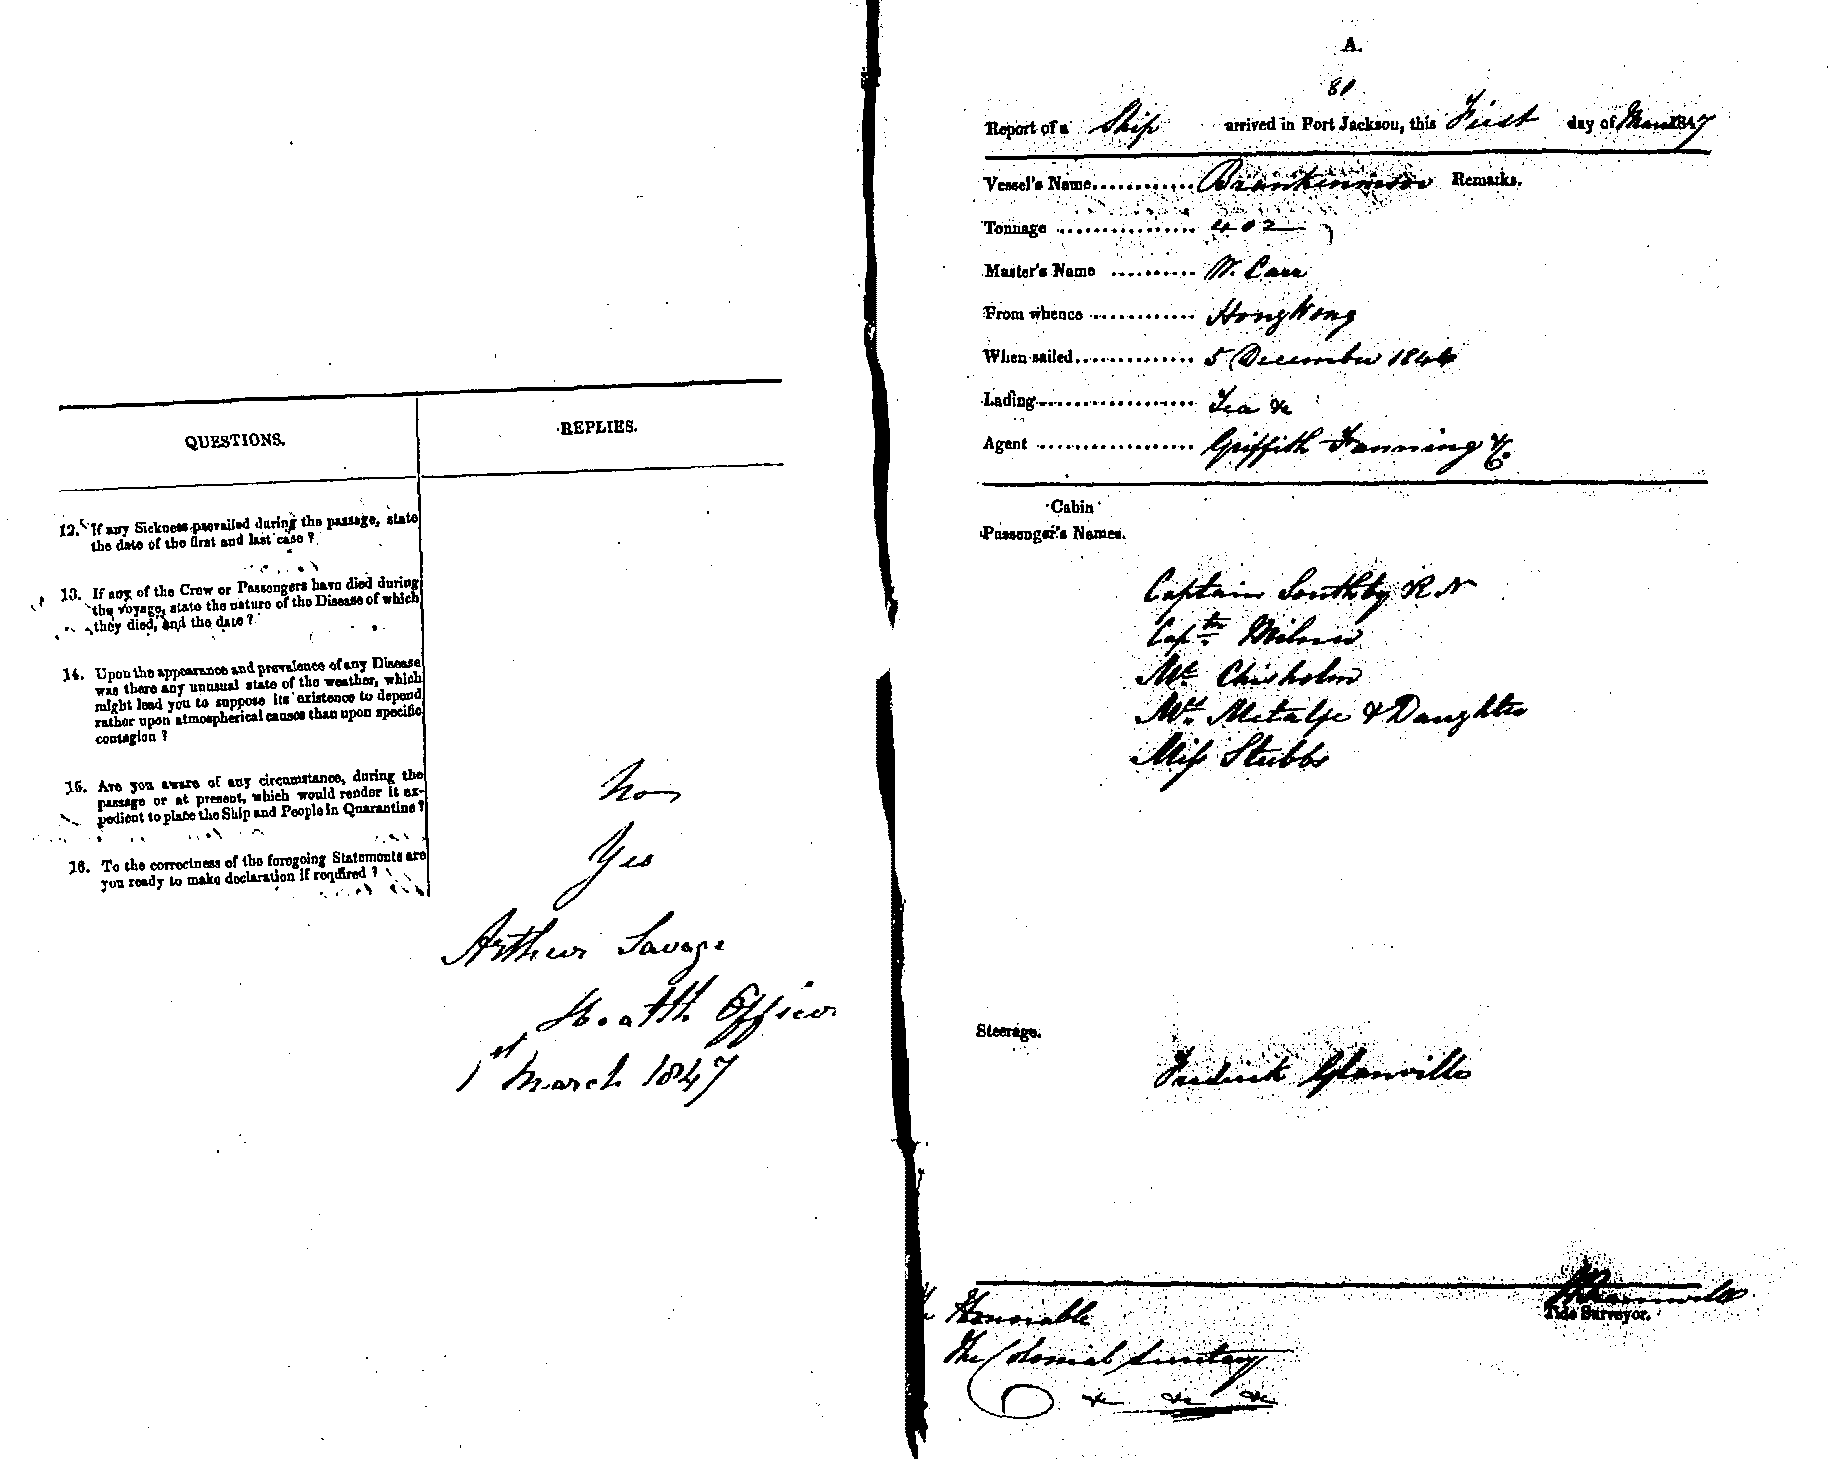 QUESTIONS.
REPLIES.
12. If any Sickness prevailed during the passage, state
the date of the first and last case ?
13. If any of the Crew or Passengers have died during
the voyage, state the nature of the Disease of which
they died, and the date ?
14. Upon the appearance and prevalence of any Disease
was there any unusual state of the weather, which
might lead you to suppose its existence to depend
rather upon atmospherical causes than upon specific
contagion ?
15. Are you aware of any circumstance, during the
passage or at present, which would render it ex-
pedient to place the Ship and People in Quarantine ?
No
16. To the correctness of the foregoing Statements are
you ready to make declaration if required ?
Yes
Arthur Savage
Health Officer
1st March 1847
A.
81
Report of a Ship arrived in Port Jackson, this First day of March 1847
Vessel's Name Brankenmoor Remarks.
Tonnage 402
Master's Name W. Carr
From whence Hong Kong
When sailed 5 December 1846
Lading Tea &c
Agent Griffith Fanning & Co
Cabin
Passenger's Names.
Captain Southby R N
Captn Milner
Mr Chisholm
Mrs Metalfe & Daughter
Miss Stubbs
Steerage.
Frederick Glanville
Tide Surveyor.
Honorable
The Colonial Secretary
&c &c &c